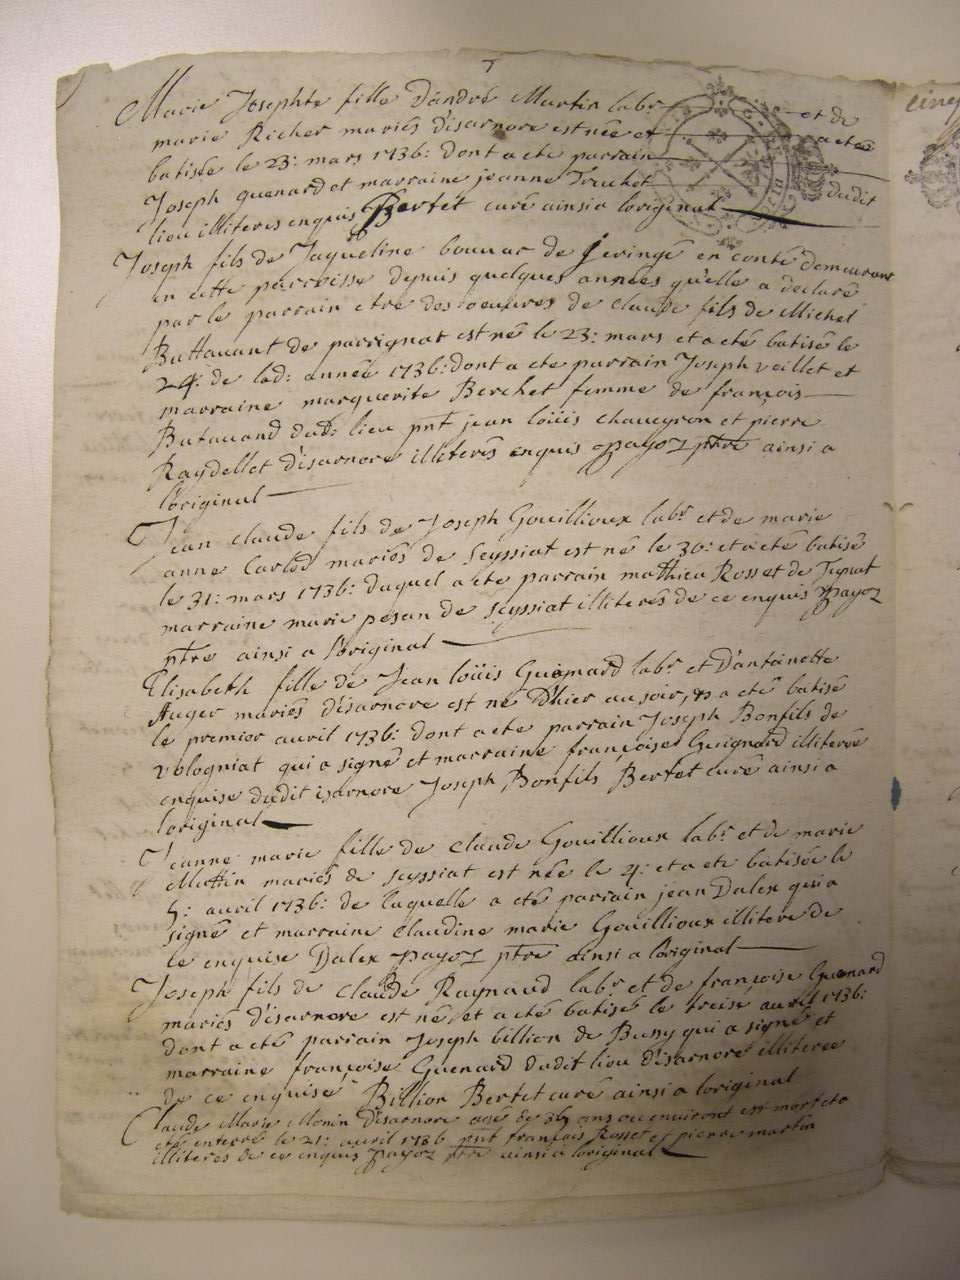 Marie Josephte fille D'andré Martin labr et de
marie Richer mariés d'isarnore est née et a eté
batisée le 23: mars 1736: dont a eté parrain
Joseph quenard et marraine jeanne Truchet dudit
lieu illiteres enquis Bertet curé ainsi a l'original
Joseph fils de Jaqueline bouvar de Jevringe en conté demeurant
en cette parroisse depuis quelques années qu'elle a declaré
par le parrain etre des oeuvres de claude fils de Michel
Buttavant de parrignat est né le 23: mars et a eté batisé le
24: de lad: année 1736: dont a ete parrain Joseph veillet et
marraine marguerite Berchet femme de françois
Butavand dud: lieu pnt jean loüis chaveyron et pierre
Raydellet d'isarnore illiterés enquis payoz ptre ainsi a
l'original
Jean claude fils de Joseph Gouillioux labr et de marie
anne Carlod mariés de seyssiat est né le 30: et a eté batisé
le 31: mars 1736: duquel a ete parrain mathieu Rosset de Tignat
marraine marie pesan de seyssiat illiterés de ce enquis payoz
ptre ainsi a l'original
Elisabeth fille de Jean loüis Guignard labr et D'antoinette
Auger mariés d'isarnore est né D'hier au soir, & a eté batisé
le premier avril 1736: dont a ete parrain Joseph Bonfils de
volognat qui a signé et marraine françoise Guignard illiterée
enquise dudit isarnore Joseph Bonfils Bertet curé ainsi a
l'original
Jeanne marie fille de claude Gouillioux labr et de marie
Mettin mariés de seyssiat est née le 4: et a ete batisée le
5: avril 1736: de laquelle a eté parrain jean Dalex qui a
signé et marraine claudine marie Gouillioux illitere de
ce enquise Dalex payoz ptre ainsi a l'original
Joseph fils de claude Raynaud labr et de françoise Guenard
mariés d'isarnore est né et a eté batisé le treise avril 1736:
dont a eté parrain Joseph billion de Bussy qui a signé et
marraine françoise Guenard dudit lieu d'isarnore illiteree
de ce enquise Billion Bertet curé ainsi a l'original
Claude Marie Monin D'isarnore agé de 35 ans ou environt est mort et a
eté enterré le 21: avril 1736 pnt françois Rosset et pierre martin
illiteres de ce enquis payoz ptre ainsi a l'original